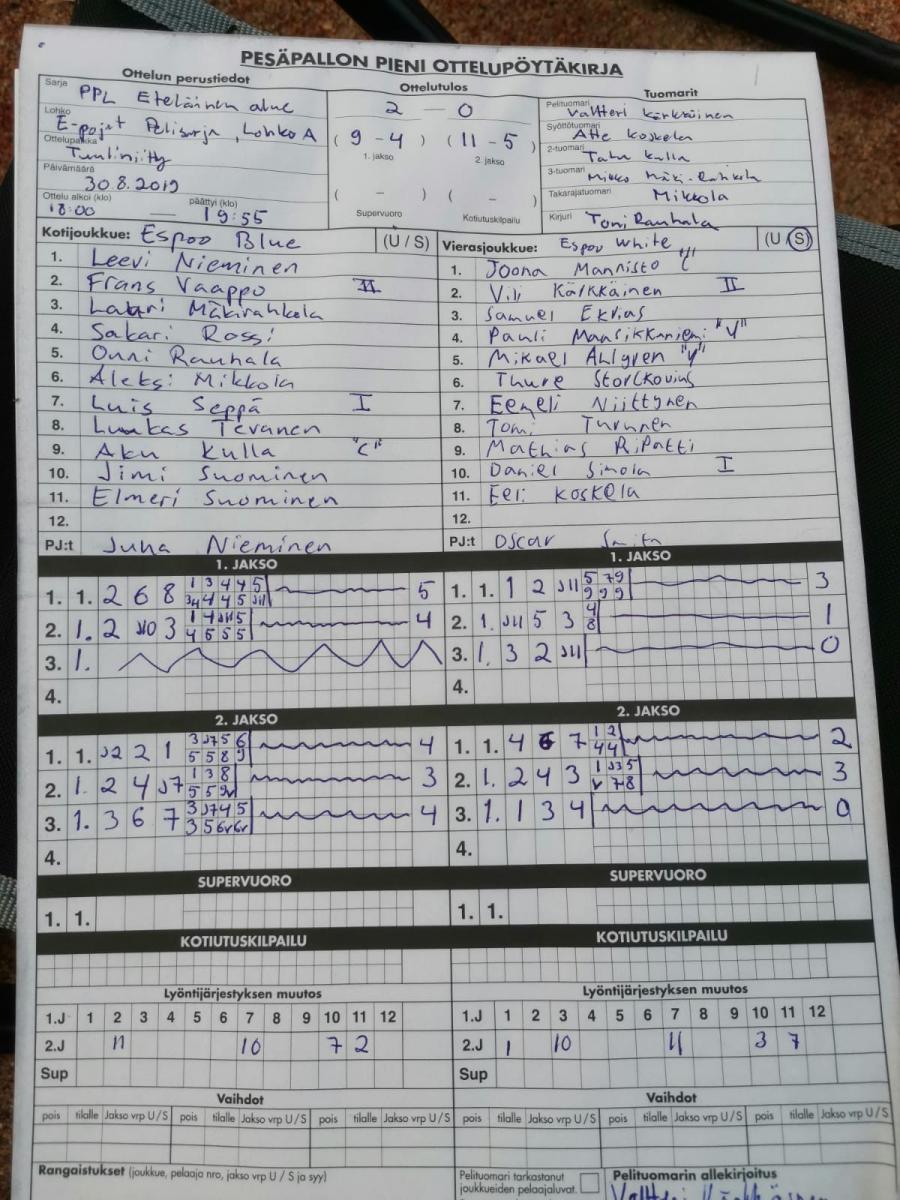 PESÄPALLON PIENI OTTELUPÖYTÄKIRJA
Ottelun perustiedot
Sarja PPL Eteläinen alue
Lohko E-pojat Pelisarja, Lohko A
Ottelupaikka Tuuliniitty
Päivämäärä 30.8.2019
Ottelu alkoi (klo) päättyi (klo)
18:00 — 19:55
Ottelutulos
2 — 0
( 9 - 4 ) ( 11 - 5 )
1. jakso 2. jakso
( - ) ( - )
Supervuoro Kotiutuskilpailu
Tuomarit
Pelituomari Valtteri Kärkkäinen
Syöttötuomari Atte Koskela
2-tuomari Tatu Kulla
3-tuomari Mikko Mäki-Rahkola
Takarajatuomari Mikkola
Kirjuri Toni Rauhala
Kotijoukkue: Espoo Blue (U / S)
1. Leevi Nieminen
2. Frans Vaappo II
3. Mäkirahkola
4. Sakari Rossi
5. Onni Rauhala
6. Aleksi Mikkola
7. Luis Seppä I
8. Luukas Tevanen
9. Aku Kulla "C"
10. Jimi Suominen
11. Elmeri Suominen
12.
PJ:t Juha Nieminen
Vierasjoukkue: Espoo White (U / S)
1. Joona Mannisto
2. Vili Kärkkäinen II
3. Samuel
4. Pauli Mansikkaniemi "V"
5. Mikael Ahlgren "V"
6. Thure
7. Eemeli Niittynen
8. Tomi Turunen
9. Mathias Ripatti
10. Daniel Simola I
11. Eeli Koskela
12.
PJ:t Oscar
1. JAKSO
1. 1. 2 6 8 5
2. 1. 2 3 4
3. 1.
4.
1. JAKSO
1. 1. 1 2 J11 3
2. 1. J11 5 3 1
3. 1. 3 2 J11 0
4.
2. JAKSO
1. 1. J2 2 1 4
2. 1. 2 4 J7 3
3. 1. 3 6 7 4
4.
2. JAKSO
1. 1. 4 6 7 2
2. 1. 2 4 3 3
3. 1. 1 3 4 0
4.
SUPERVUORO
1. 1.
SUPERVUORO
1. 1.
KOTIUTUSKILPAILU
KOTIUTUSKILPAILU
Lyöntijärjestyksen muutos
1.J 1 2 3 4 5 6 7 8 9 10 11 12
2.J 11 10 7 2
Sup
Lyöntijärjestyksen muutos
1.J 1 2 3 4 5 6 7 8 9 10 11 12
2.J 1 10 11 3 7
Sup
Vaihdot
pois tilalle Jakso vrp U/S pois tilalle Jakso vrp U/S pois tilalle Jakso vrp U/S
Vaihdot
pois tilalle Jakso vrp U/S pois tilalle Jakso vrp U/S pois tilalle Jakso vrp U/S
Rangaistukset (joukkue, pelaaja nro, jakso vrp U / S ja syy)
Pelituomari tarkastanut
joukkueiden pelaajaluvat.
Pelituomarin allekirjoitus